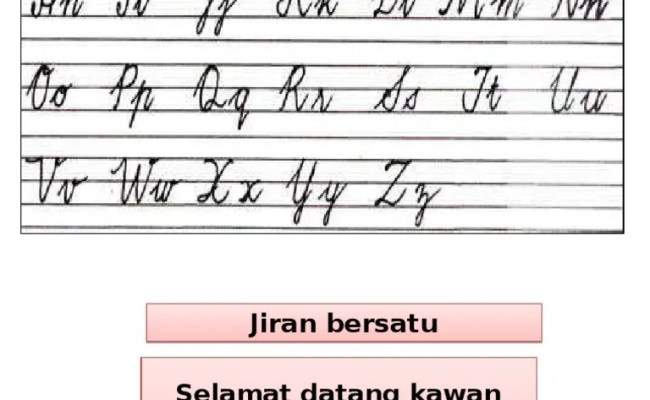 Hh Ii Jj Kk Ll Mm Nn
Oo Pp Qq Rr Ss Tt Uu
Vv Ww Xx Yy Zz
Jiran bersatu
Selamat datang kawan